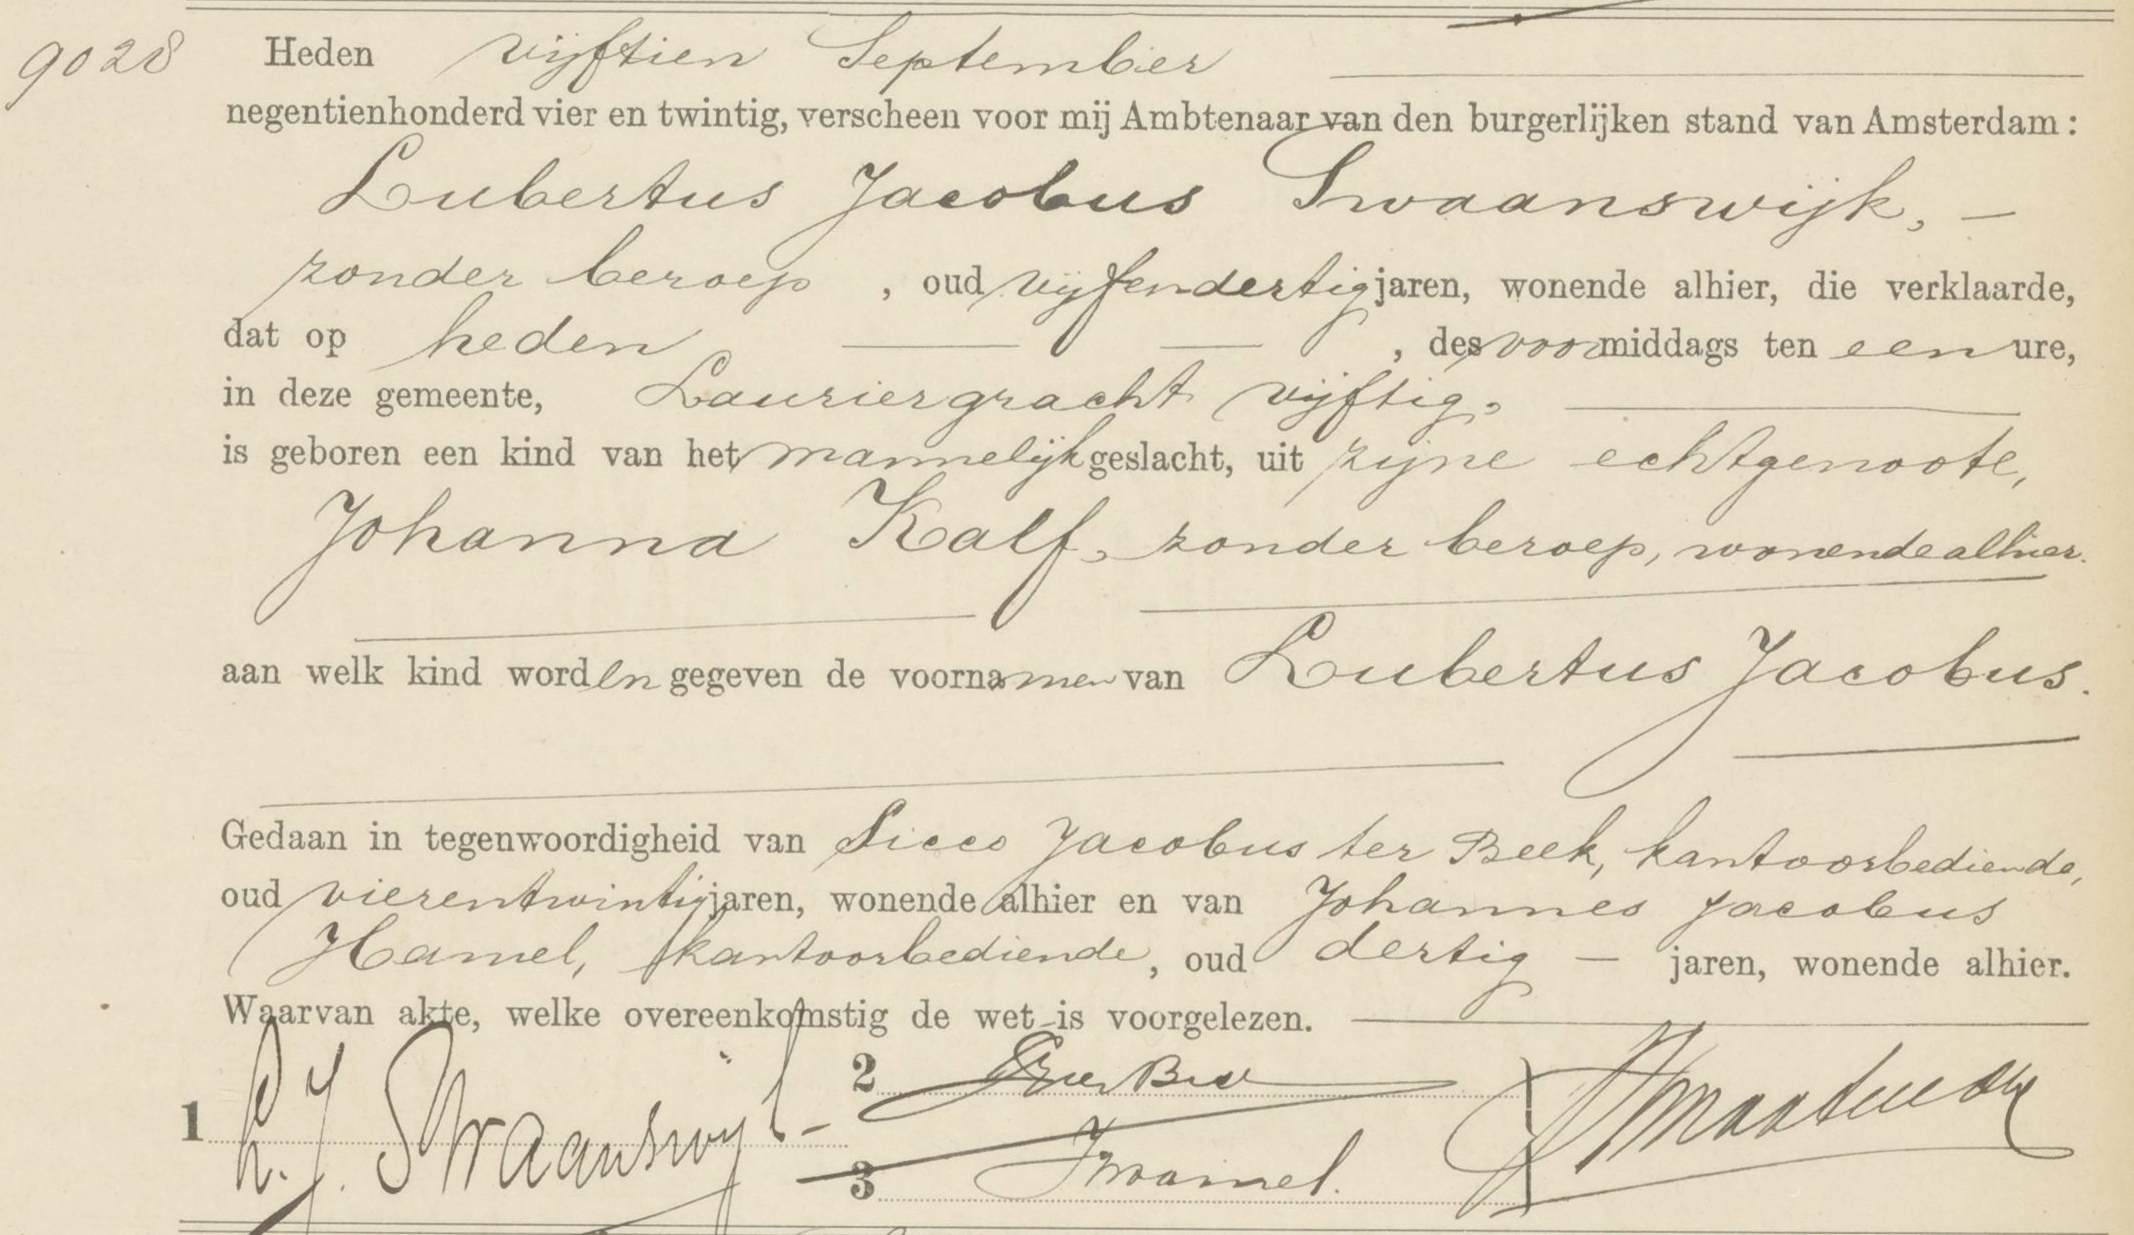 9028 Heden vijftien September
negentienhonderd vier en twintig, verscheen voor mij Ambtenaar van den burgerlijken stand van Amsterdam:
Lubertus Jacobus Swaanswijk, —
zonder beroep, oud vijfendertig jaren, wonende alhier, die verklaarde,
dat op heden, des voormiddags ten een ure,
in deze gemeente, Lauriergracht vijftig,
is geboren een kind van het mannelijk geslacht, uit zijne echtgenoote,
Johanna Kalf, zonder beroep, wonende alhier.
aan welk kind worden gegeven de voornamen van Lubertus Jacobus.
Gedaan in tegenwoordigheid van Sicco Jacobus ter Beek, kantoorbediende,
oud vierentwintig jaren, wonende alhier en van Johannes Jacobus
Hamel, kantoorbediende, oud dertig — jaren, wonende alhier.
Waarvan akte, welke overeenkomstig de wet is voorgelezen.
1 L. J. Swaanswijk
2
3 Hamel.